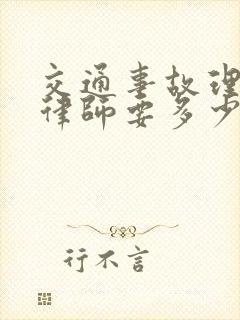 交通事故理
律师要多少
行不言